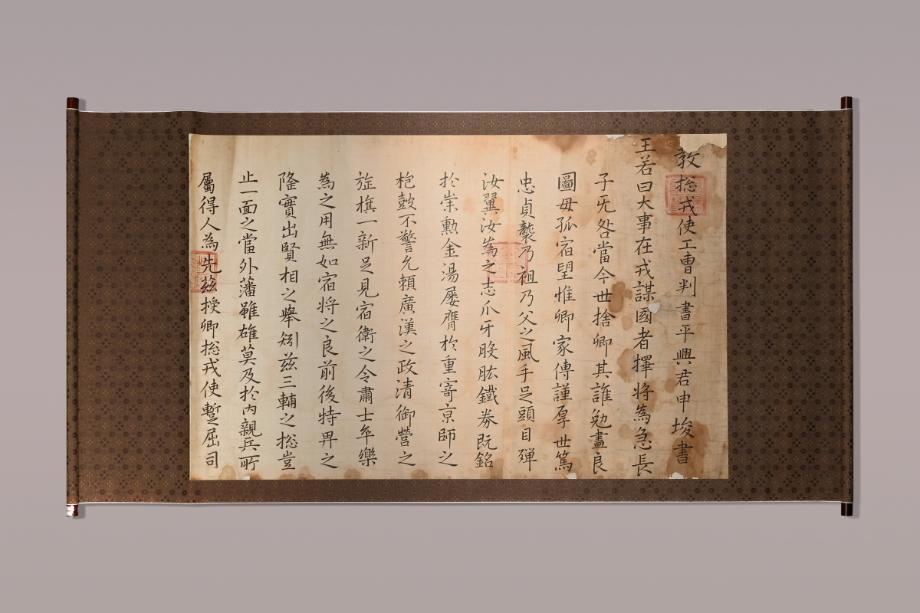 敎捴戎使工曺判書平興君申埈書
王若曰大事在戎謀國者擇將為急長
子旡咎當今世捨卿其誰勉盡良
圖毋孤宿望惟卿家傳謹厚世篤
忠貞襲乃祖乃父之風手足頭目殫
汝翼汝為之志爪牙股肱鐵券既銘
於崇勳金湯屡膺於重寄京師之
枹鼓不警允賴廣漢之政清御營之
旌旗一新足見宿衛之令肅士卒樂
為之用無如宿将之良前後特畀之
隆實出賢相之擧矧玆三輔之捴豈
止一面之當外藩雖雄莫及於內親兵所
屬得人為先玆授卿捴戎使蹔屈司